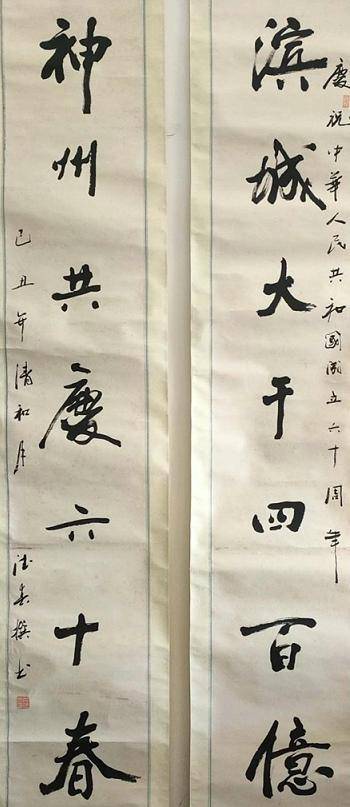 慶祝中華人民共和國成立六十周年
滨城大干四百億
神州共慶六十春
己丑年清和月
春撰书